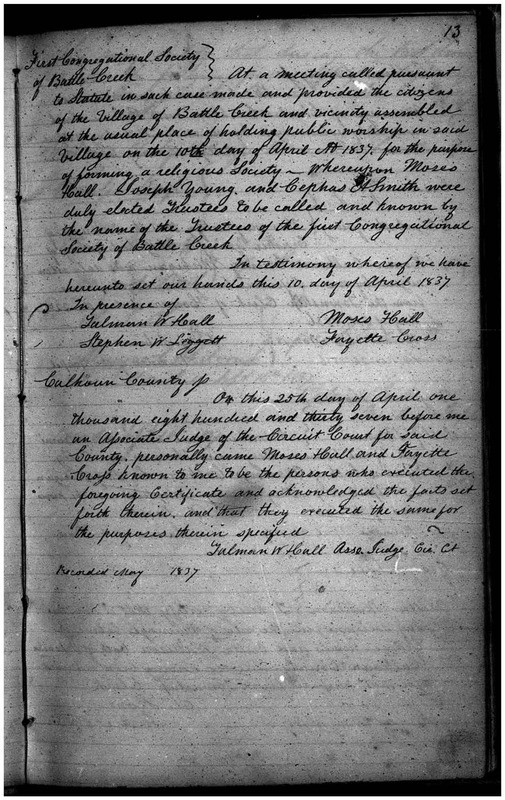 13
First Congregational Society
of Battle Creek } At a meeting called pursuant
to Statute in such case made and provided the citizens
of the Village of Battle Creek and vicinity assembled
at the usual place of holding public worship in said
Village on the 10th day of April AD 1837. for the purpose
of forming a religious Society ~ Whereupon Moses
Hall. Joseph Young, and Cephas A Smith were
duly elected Trustees to be called and known by
the name of the Trustees of the first Congregational
Society of Battle Creek
In testimony whereof we have
hereunto set our hands this 10. day of April 1837
In presence of
Talman W Hall Moses Hall
Stephen W Fayette Cross
Calhoun County ss
On this 25th day of April one
thousand eight hundred and thirty seven before me
an Associate Judge of the Circuit Court for said
County, personally came Moses Hall and Fayette
Cross known to me to be the persons who executed the
foregoing Certificate and acknowledged the facts set
forth therein, and that they executed the same for
the purposes therein specified
Talman W Hall Asso. Judge Cir. Ct
Recorded May 1837